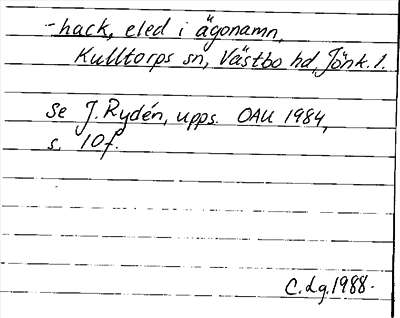 -hack, eled i ägonamn,
Kulltorps sn, Västbo hd, Jönk. l.
Se J. Rydén, upps. OAU 1984,
s. 10f.
C.Lg.1988.